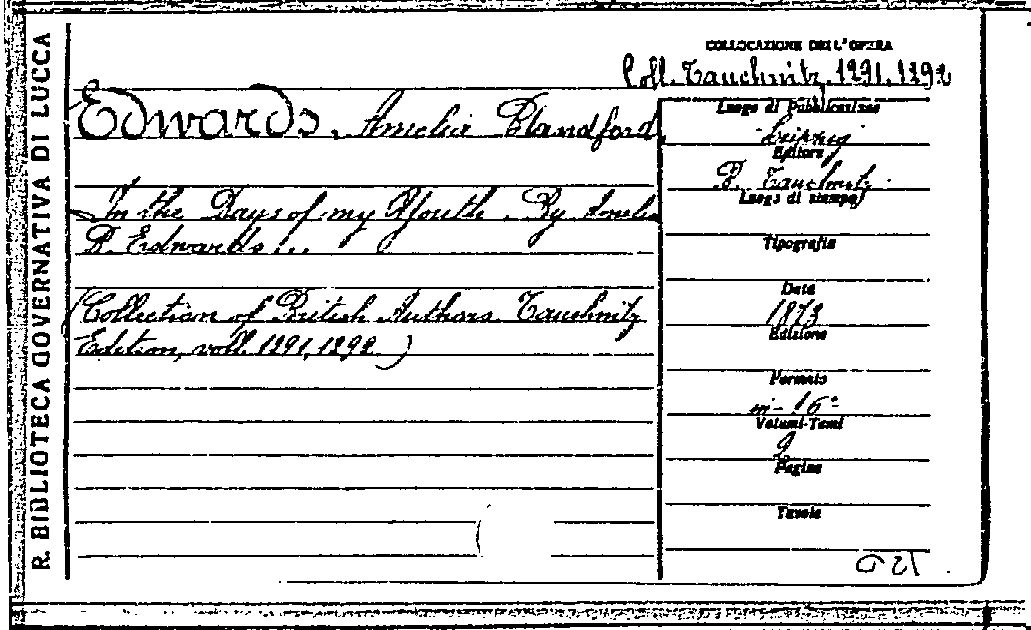 R. BIBLIOTECA GOVERNATIVA DI LUCCA
COLLOCAZIONE DELL'OPERA
Coll. Tauchnitz, 1291, 1292
Edwards, Amelia Blandford
In the Days of my Youth. By Amelia
B. Edwards...
(Collection of British Authors. Tauchnitz
Edition, voll. 1291, 1292.)
Luogo di Pubblicazione
Leipzig
Editore
B. Tauchnitz.
Luogo di stampa
Tipografia
Data
1873
Edizione
Formato
in-16°
Volumi-Tomi
2
Pagine
Tavole